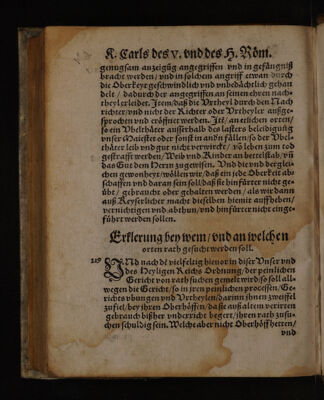 K. Carls des v. vnd des H. Röm.
genugsam anzeigūg angegriffen vnd in gefängniß
bracht werden / vnd in solchem angriff etwan durch
die Oberkeyt geschwindlich vnd vnbedächtlich gehan
delt / dadurch der angegriffen an seinen ehren nach-
theyl erleidet. Item / daß die Vrtheyl durch den Nach
richter / vnd nicht der Richter oder Vrtheyler außge-
sprochen vnd eröffnet werden. Itē / an etlichen orten /
so ein Vbelthäter ausserhalb des lasters beleidigung
vnser Maiestet oder sonst in andn̄ fällen / so der Vbel-
thäter leib vnd gut nicht verwirckt / vō leben zum tod
gestrafft werden / Weib vnd Kinder an bettelstab / vn̄
das Gut dem Herrn zugewisen. Vnd die vnd derglei-
chen gewonheyt / wöllen wir / daß ein jede Oberkeit ab-
schaffen vnd daran sein soll / daß sie hinfürter nicht ge-
übt / gebraucht oder gehalten werden / als wir dann
auß Keyserlicher macht dieselben hiemit auffheben /
vernichtigen vnd abthun / vnd hinfürter nicht einge-
führt werden sollen.
Erklerung bey wem / vnd an welchen
orten rath gesucht werden soll.
219 VNd nach dē vielfeltig hienor in diser Vnser vnd
des Heyligen Reichs Ordnung / der peinlichen
Gericht von rathsuchen gemelt wird / so soll all-
wegen die Gericht / so in jren peinlichen processen / Ge-
richts vbungen vnd Vrtheyln / darinn jhnen zweiffel
zufiel / bey jhren Oberhöffen / da sie auß altem verirrten
gebrauch bißher vnderricht begert / jhren rath zusu-
chen schuldig sein. Welche aber nicht Oberhöff hetten /
vnd